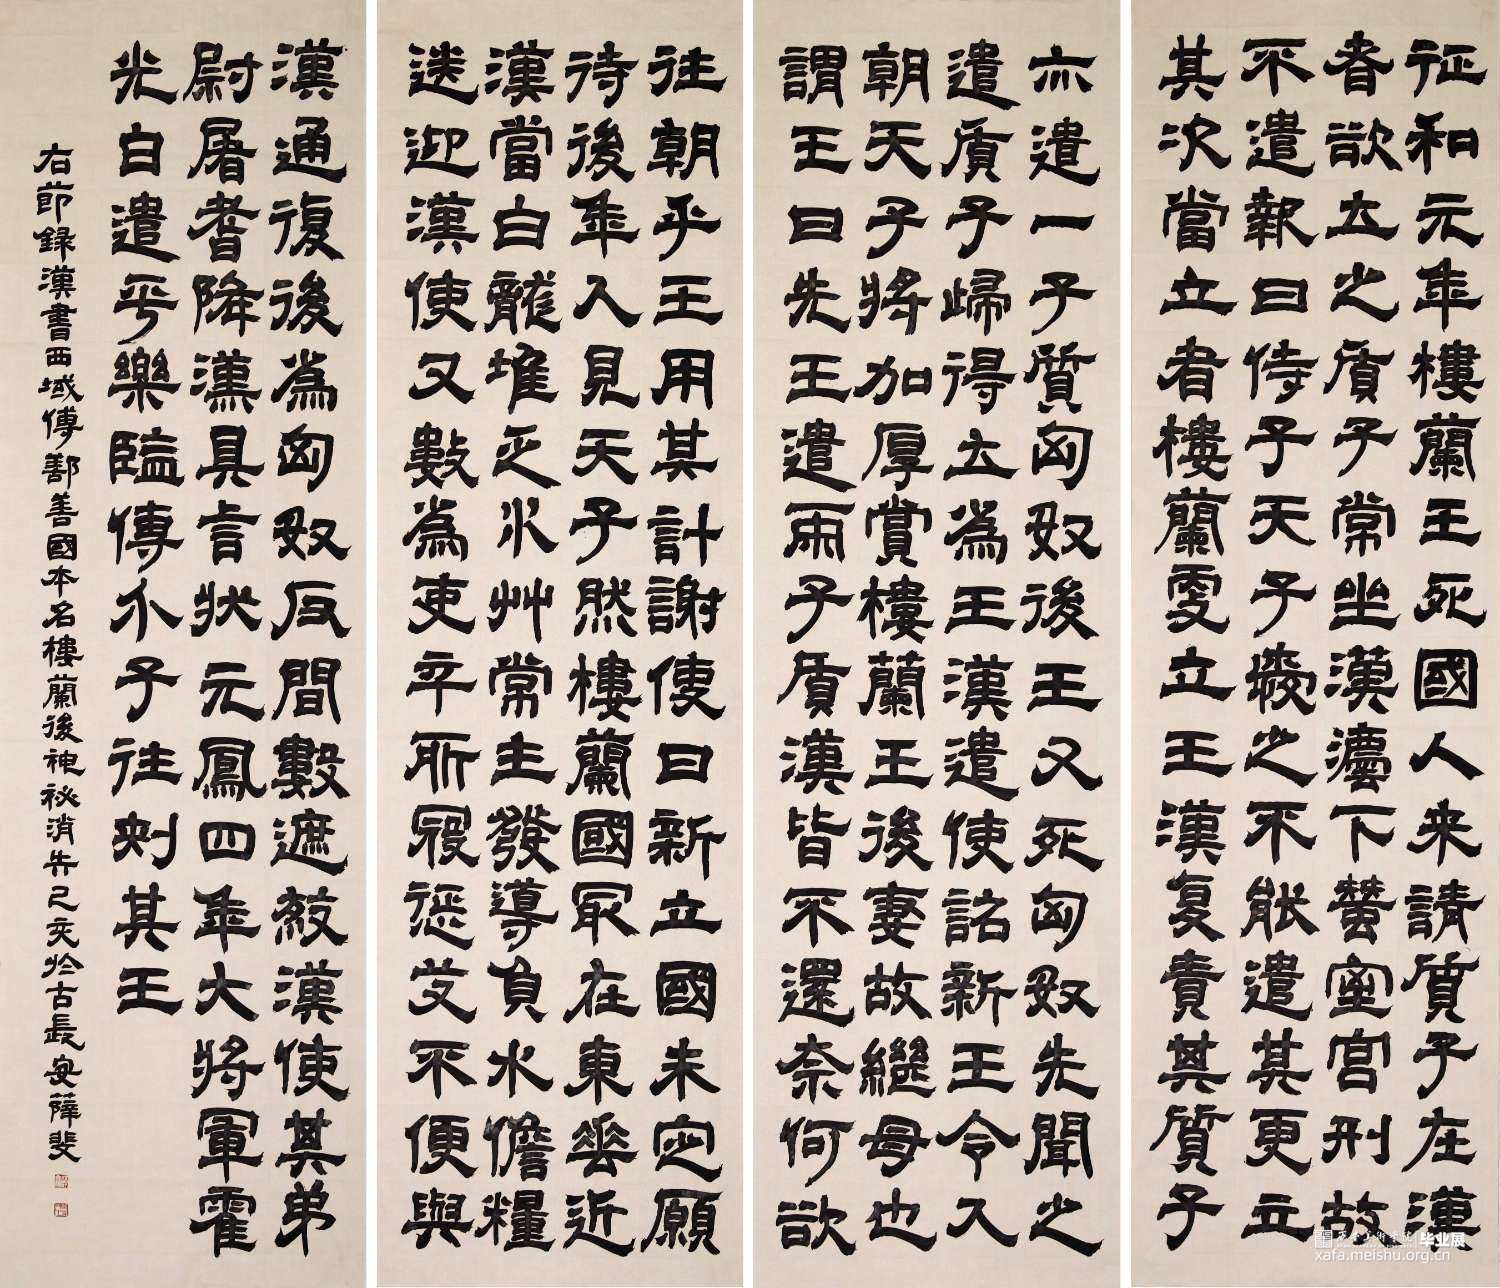 征和元年樓蘭王死國人来請質子在漢
者欲立之質子常坐漢灋下蠶室宮刑故
不遣報曰侍子天子愛之不能遣其更立
其次當立者樓蘭更立王漢復責其質子
亦遣一子質匈奴後王又死匈奴先聞之
遣質子歸得立為王漢遣使詔新王令入
朝天子將加厚賞樓蘭王後妻故繼母也
謂王曰先王遣兩子質漢皆不還奈何欲
往朝乎王用其計謝使曰新立國未定願
待後年入見天子然樓蘭國最在東垂近
漢當白龍堆乏水艸常主發導負水儋糧
送迎漢使又數為吏卒所寇懲艾不便與
漢通復後為匈奴反間數遮殺漢使其弟
尉屠耆降漢具言狀元鳳四年大將軍霍
光白遣平樂監傅介子往刺其王
右節錄漢書西域傳鄯善國本名樓蘭後神祕消失己亥於古長安薛斐
西安美术学院 毕业展
xafa.meishu.org.cn